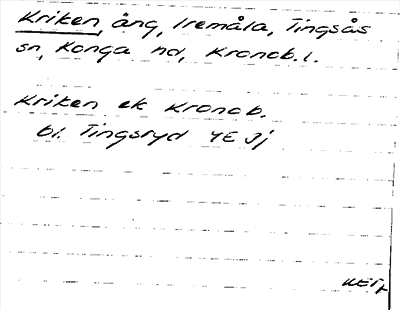 Kriken, äng, Iremåla, Tingsås
sn, Konga hd, Kronob. l.
Kriken ek Kronob.
bl. Tingsryd 4E 3j